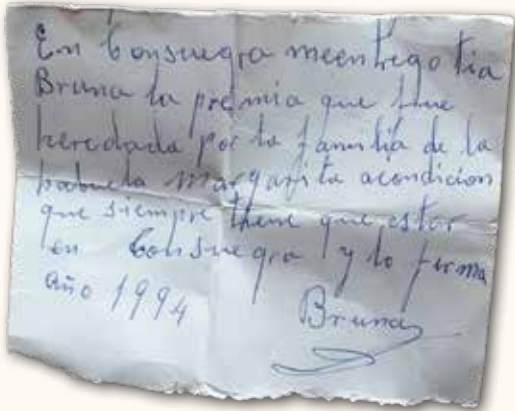 En Consuegra meentrego tia
Bruna la premia que tine
heredada por la familia de la
habuela Margarita acondicion
que siempre tiene que estar
en Consuegra y lo firma
año 1994 Bruna